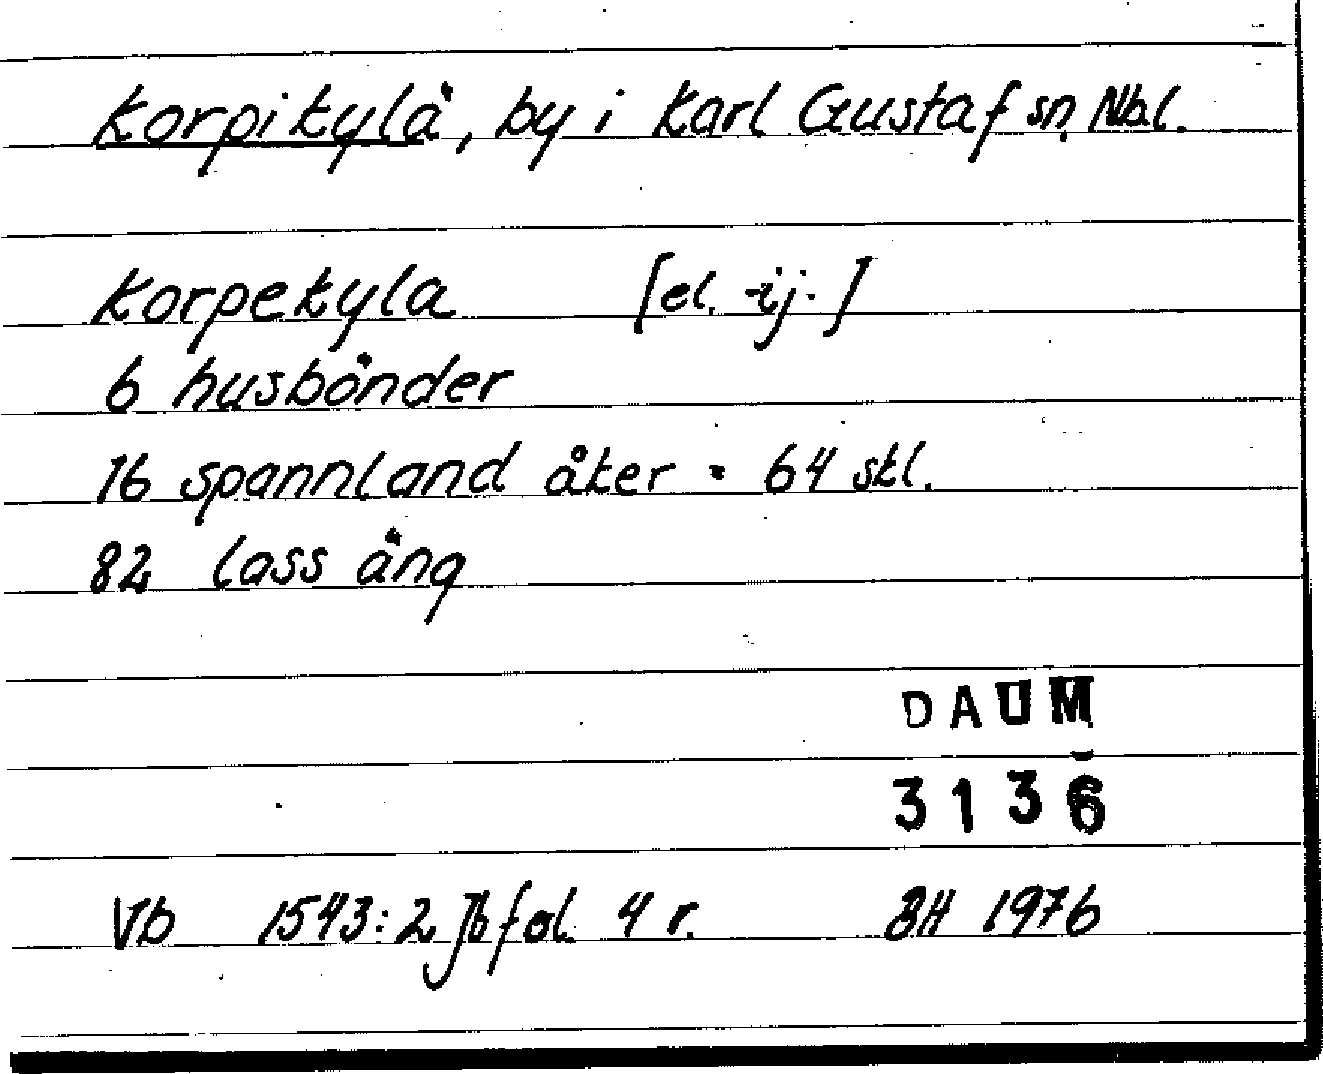 Korpikylä, by i Karl Gustaf sn, Nbl.
Korpekyla [el. -ij-]
6 husbönder
16 spannland åker = 64 skl.
82 lass äng
DAUM
3136
Vb 1543:2 Jb fol. 4 r. BH 1976